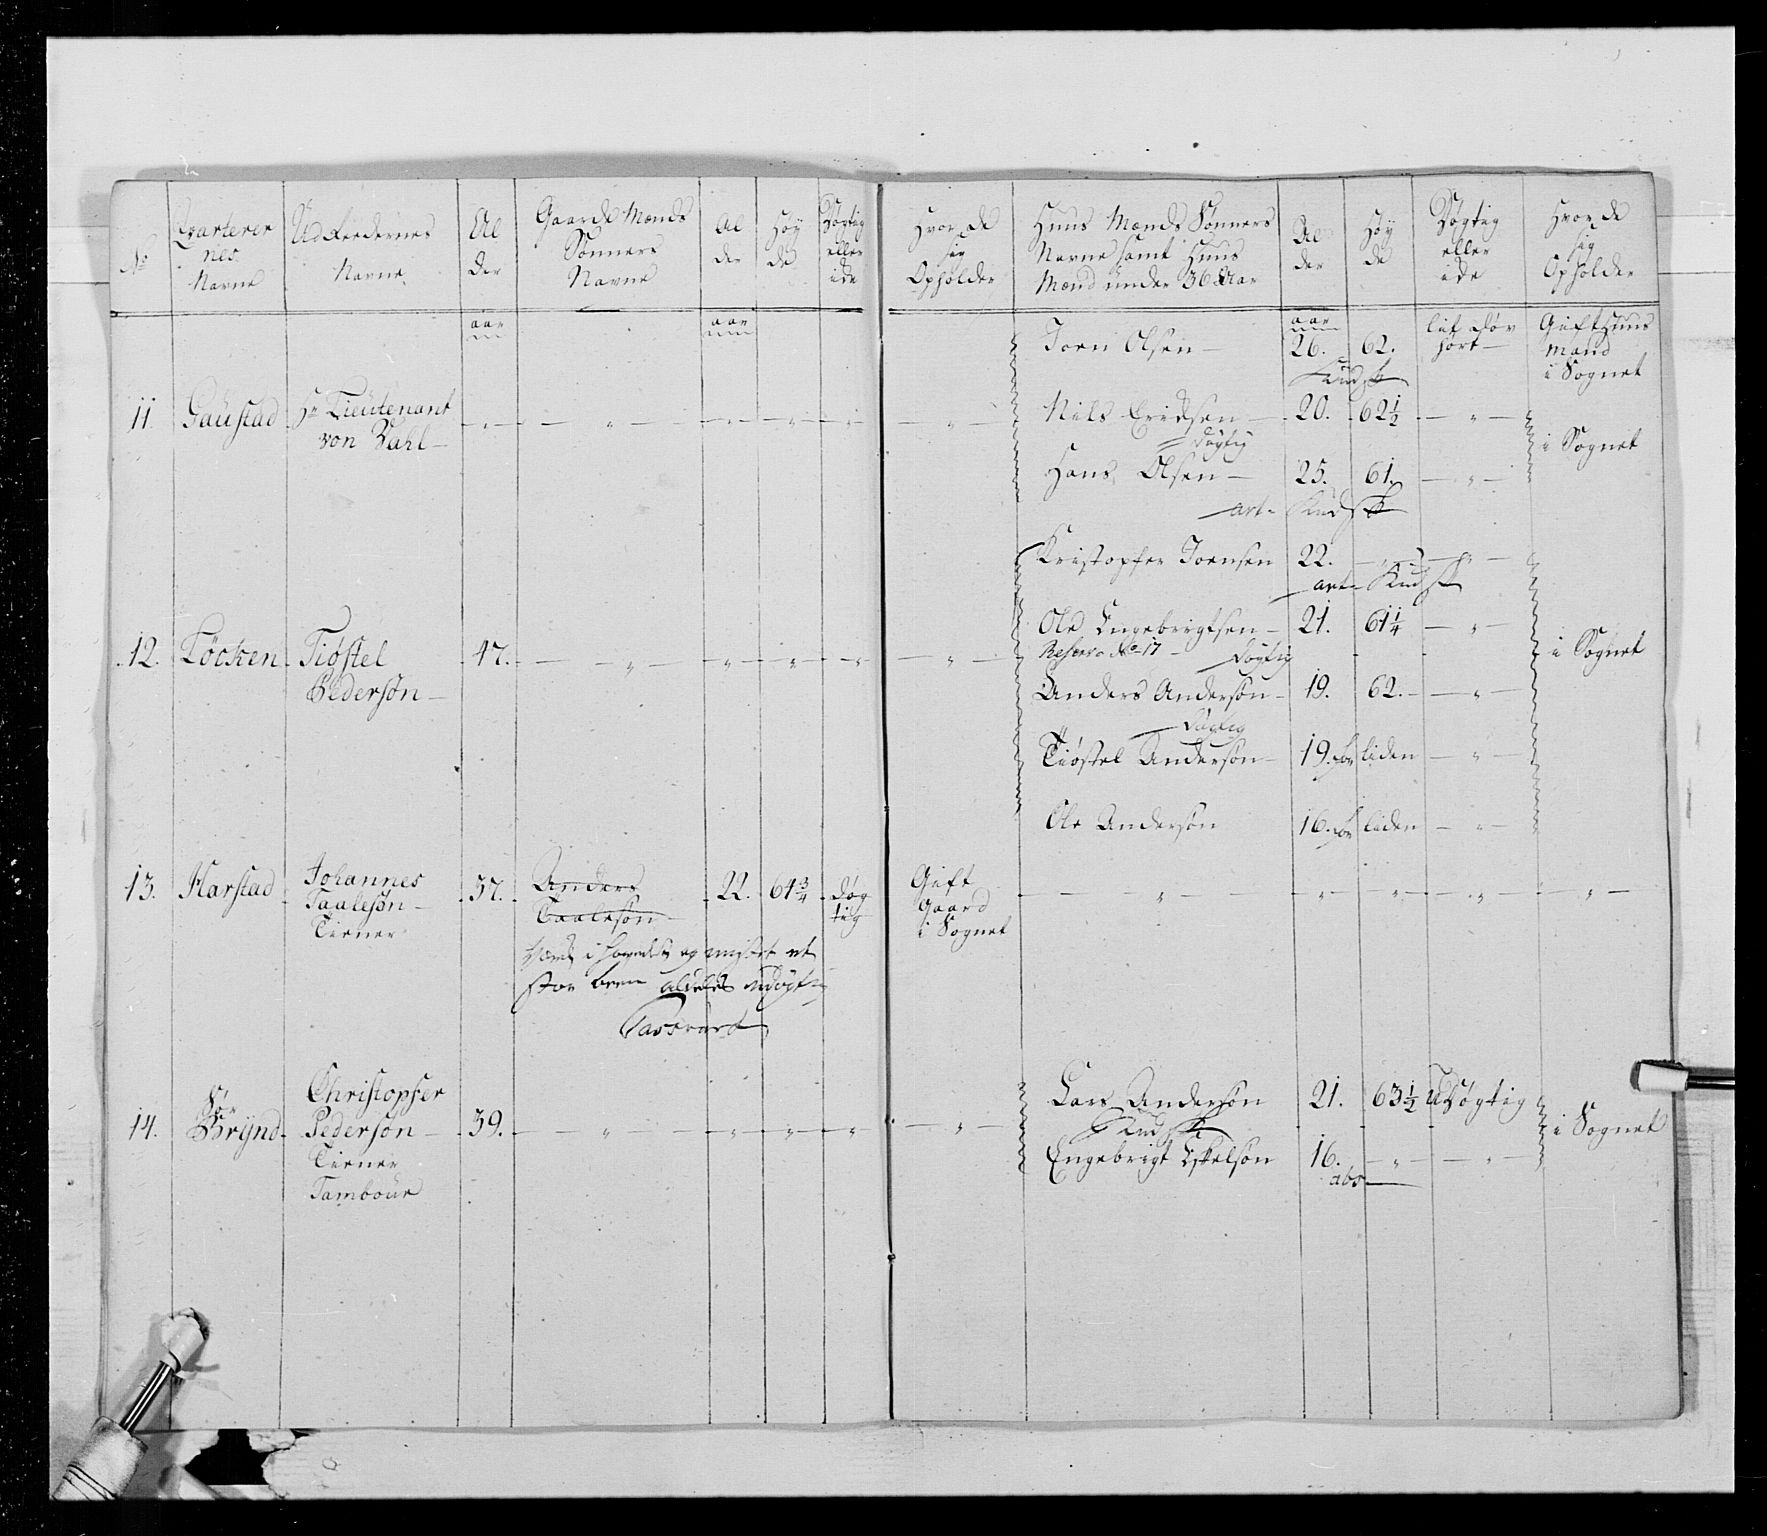 No
Qvarterer
nes
Navne
Udreedernes
Navne
Al
der
Gaards Mænds
Sönners
Navne
Al
der
Høy
de
Døgtig
eller
ide
Hvor de
sig
Opholder
Huus Mænds Sønners
Navne samt Huus
Mænd under 36 Aar
Al
der
Høy
de
Døgtig
eller
ide
Hvor de
sig
Opholder
aar
aar
aar
Joen Olsen — 26. 62.
Gift Huus
mand
i Sognet
11. Gaustad Hr Lieutenant
von Dahl —
Nils Eridsen — 20. 62 1/2 — " —
Døgtig
i Sognet
Hans Olsen — 25. 61. — " —
Kristopfer Joensen 22. — " —
12. Löcken Tiøstel
Pedersøn — 47. — " —
Ole Engebrigtsen — 21. 61 1/4 — " —
Reserve No 17 — Døgtig
i Sognet
Anders Andersøn — 19. 62. — " —
Døgtig
Tiøstel Andersøn — 19. for liden — " —
Ole Andersøn 16. for liden — " —
13. Harstad Johannes
Taalesøn —
Tiener
37. Anders
Taalesøn — 22. 64 3/4 døg
tig
Gift
Gaard
i Sognet
— " —
14. Sør
Brÿnd Christopfer
Pedersøn — 39. — " —
Tiener
Tambour
Lars Andersøn 21. 63 1/2 Udøgtig
i Sognet
Engebrigt Eskelsøn 16. — " —
abs